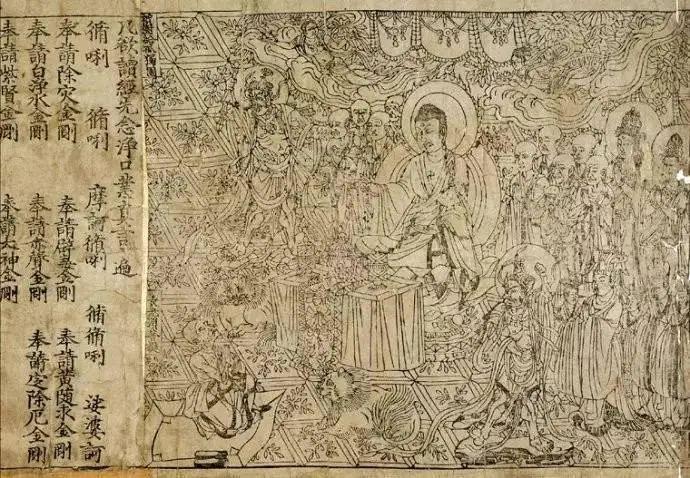 祇樹給孤獨園
凡欲讀經先念淨口業真言一遍
脩唎 脩唎 摩訶脩唎 脩脩唎 娑婆訶
奉請除災金剛 奉請辟毒金剛 奉請黃隨求金剛
奉請白淨水金剛 奉請赤聲金剛 奉請定除厄金剛
奉請紫賢金剛 奉請大神金剛